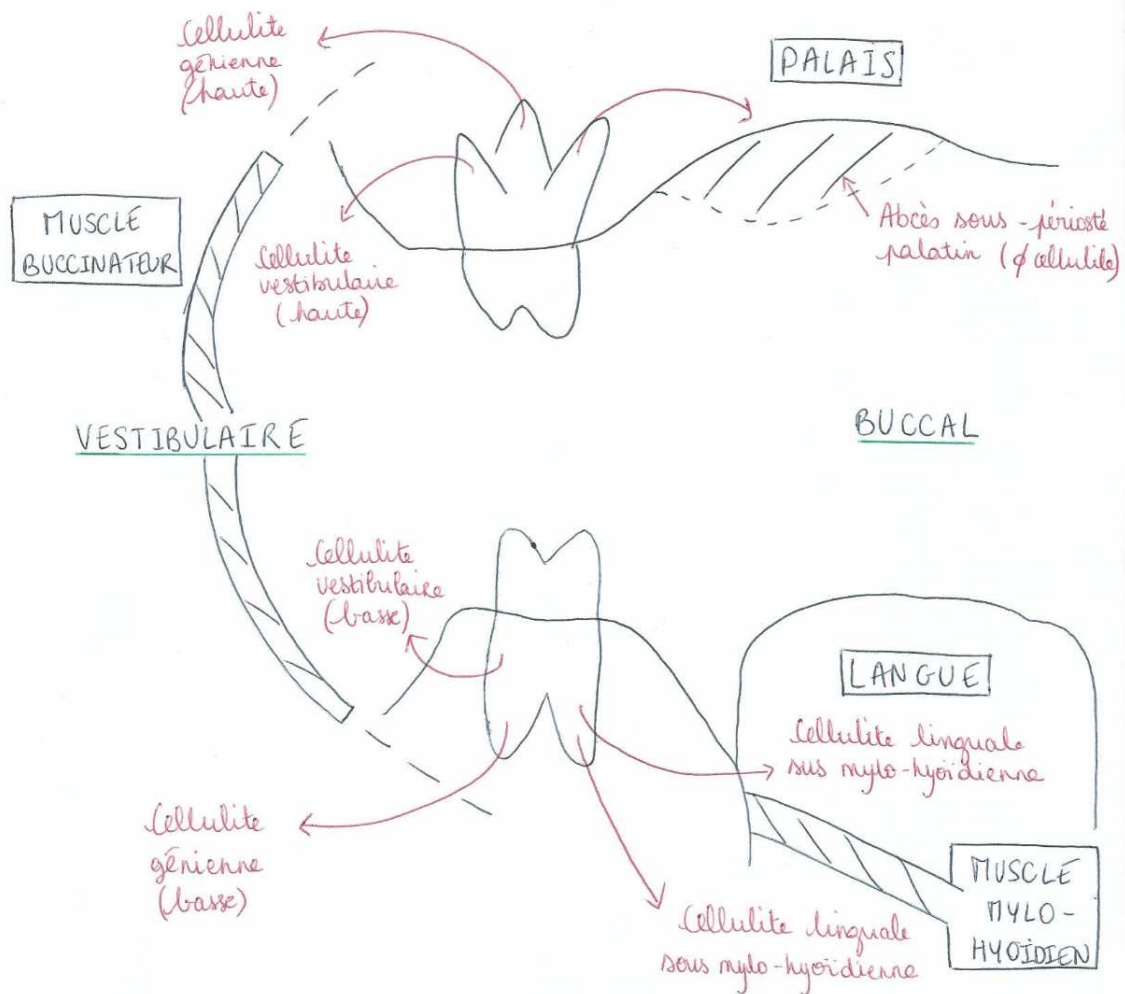 Cellulite
génienne
(haute)
PALAIS
MUSCLE
BUCCINATEUR
Cellulite
vestibulaire
(haute)
Abcès sous-périosté
palatin (∅ cellulite)
VESTIBULAIRE
BUCCAL
Cellulite
vestibulaire
(basse)
LANGUE
Cellulite linguale
sus mylo-hyoïdienne
Cellulite
génienne
(basse)
Cellulite linguale
sous mylo-hyoïdienne
MUSCLE
MYLO-
HYOÏDIEN